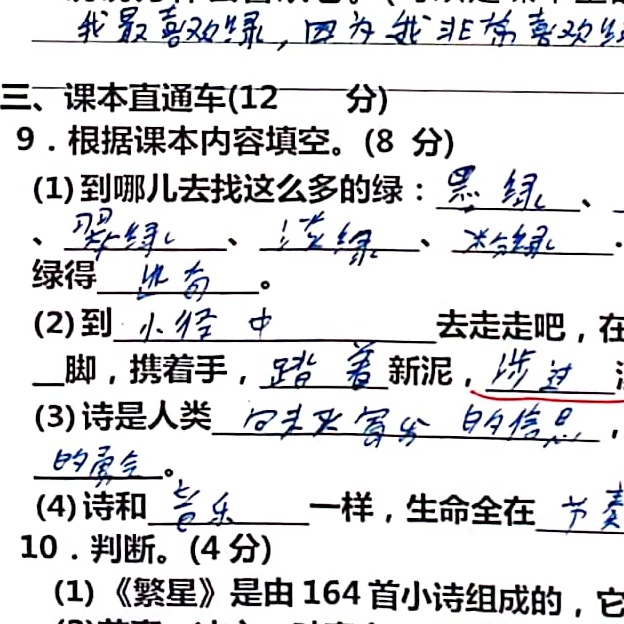 我最喜欢绿，因为我非常喜欢绿
三、课本直通车(12 分)
9．根据课本内容填空。(8 分)
(1)到哪儿去找这么多的绿：墨绿、
、翠绿、淡绿、粉绿
绿得
(2)到小径中去走走吧，在
脚，携着手，踏着新泥，涉过
(3)诗是人类向未来寄发的信息，
的勇气。
(4)诗和音乐一样，生命全在节奏
10．判断。(4分)
(1)《繁星》是由164首小诗组成的，它